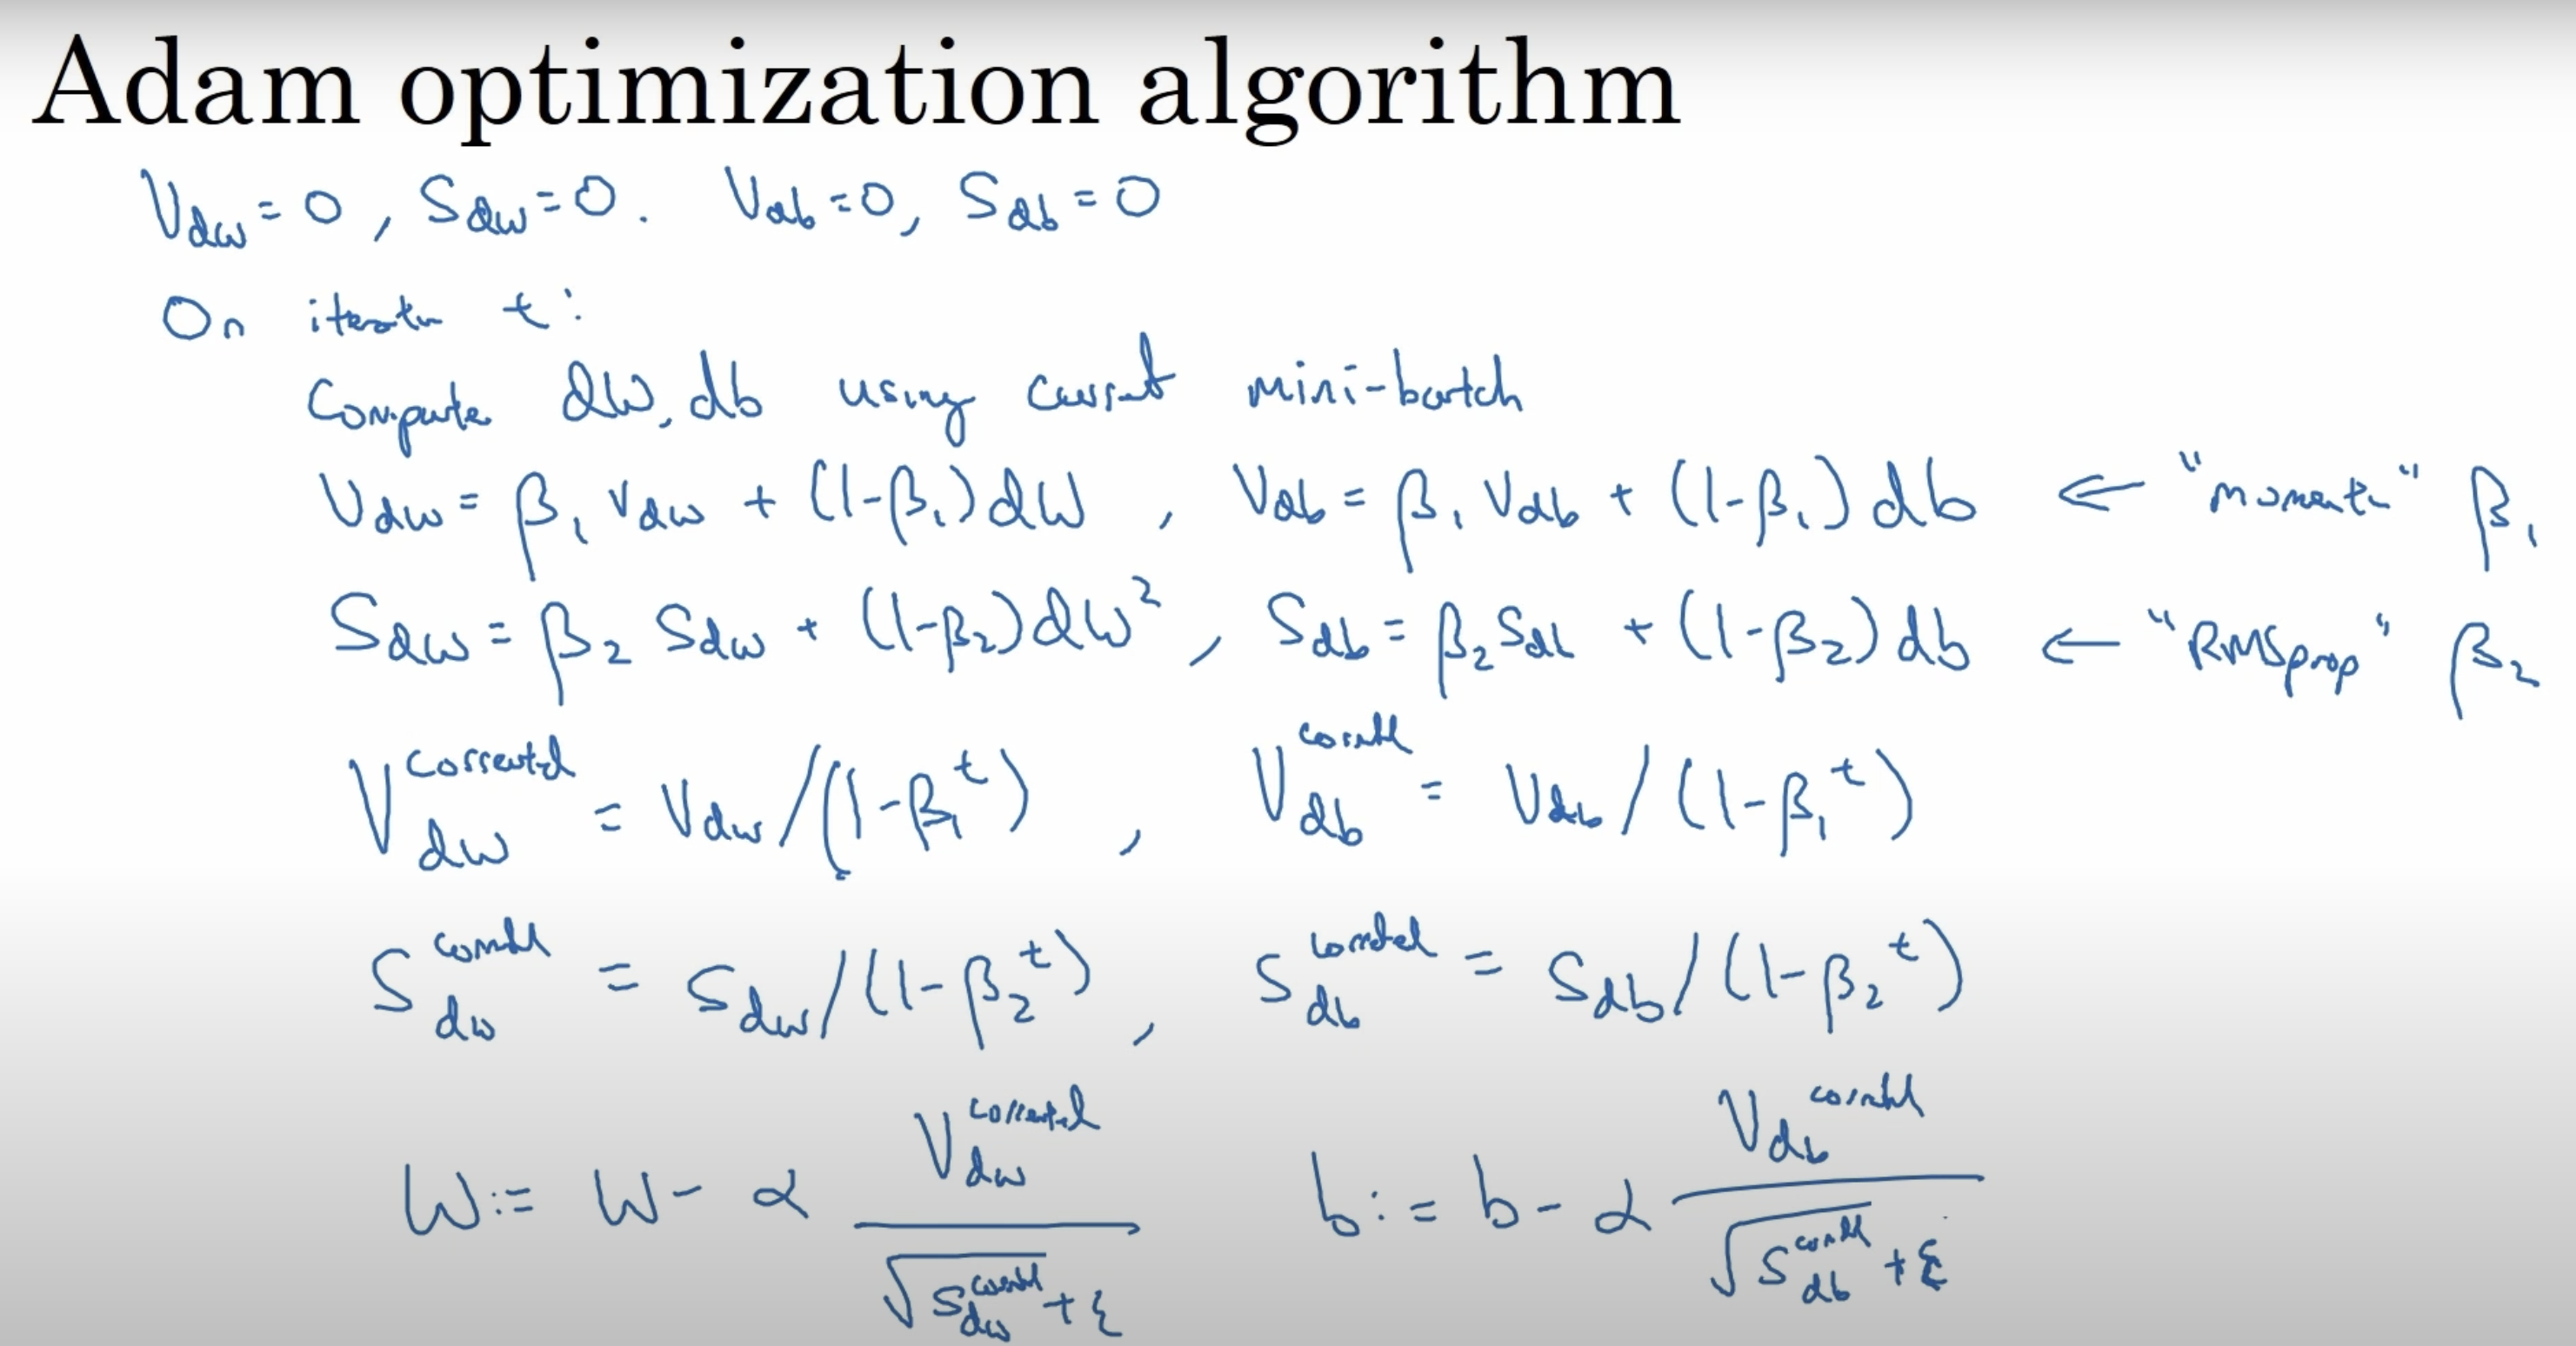 Adam optimization algorithm
V_dw = 0, S_dw = 0. V_db = 0, S_db = 0
On iteratn t:
Compute dW, db using current mini-batch
V_dw = β₁ V_dw + (1-β₁) dW, V_db = β₁ V_db + (1-β₁) db ← "momentu" β₁
S_dw = β₂ S_dw + (1-β₂) dW², S_db = β₂ S_db + (1-β₂) db ← "RMSprop" β₂
V_dw^corrected = V_dw/(1-β₁^t), V_db^corrected = V_db/(1-β₁^t)
S_dw^corrected = S_dw/(1-β₂^t), S_db^corrected = S_db/(1-β₂^t)
W := W - α V_dw^corrected / (√S_dw^corrected + ε) b := b - α V_db^corrected / (√S_db^corrected + ε)